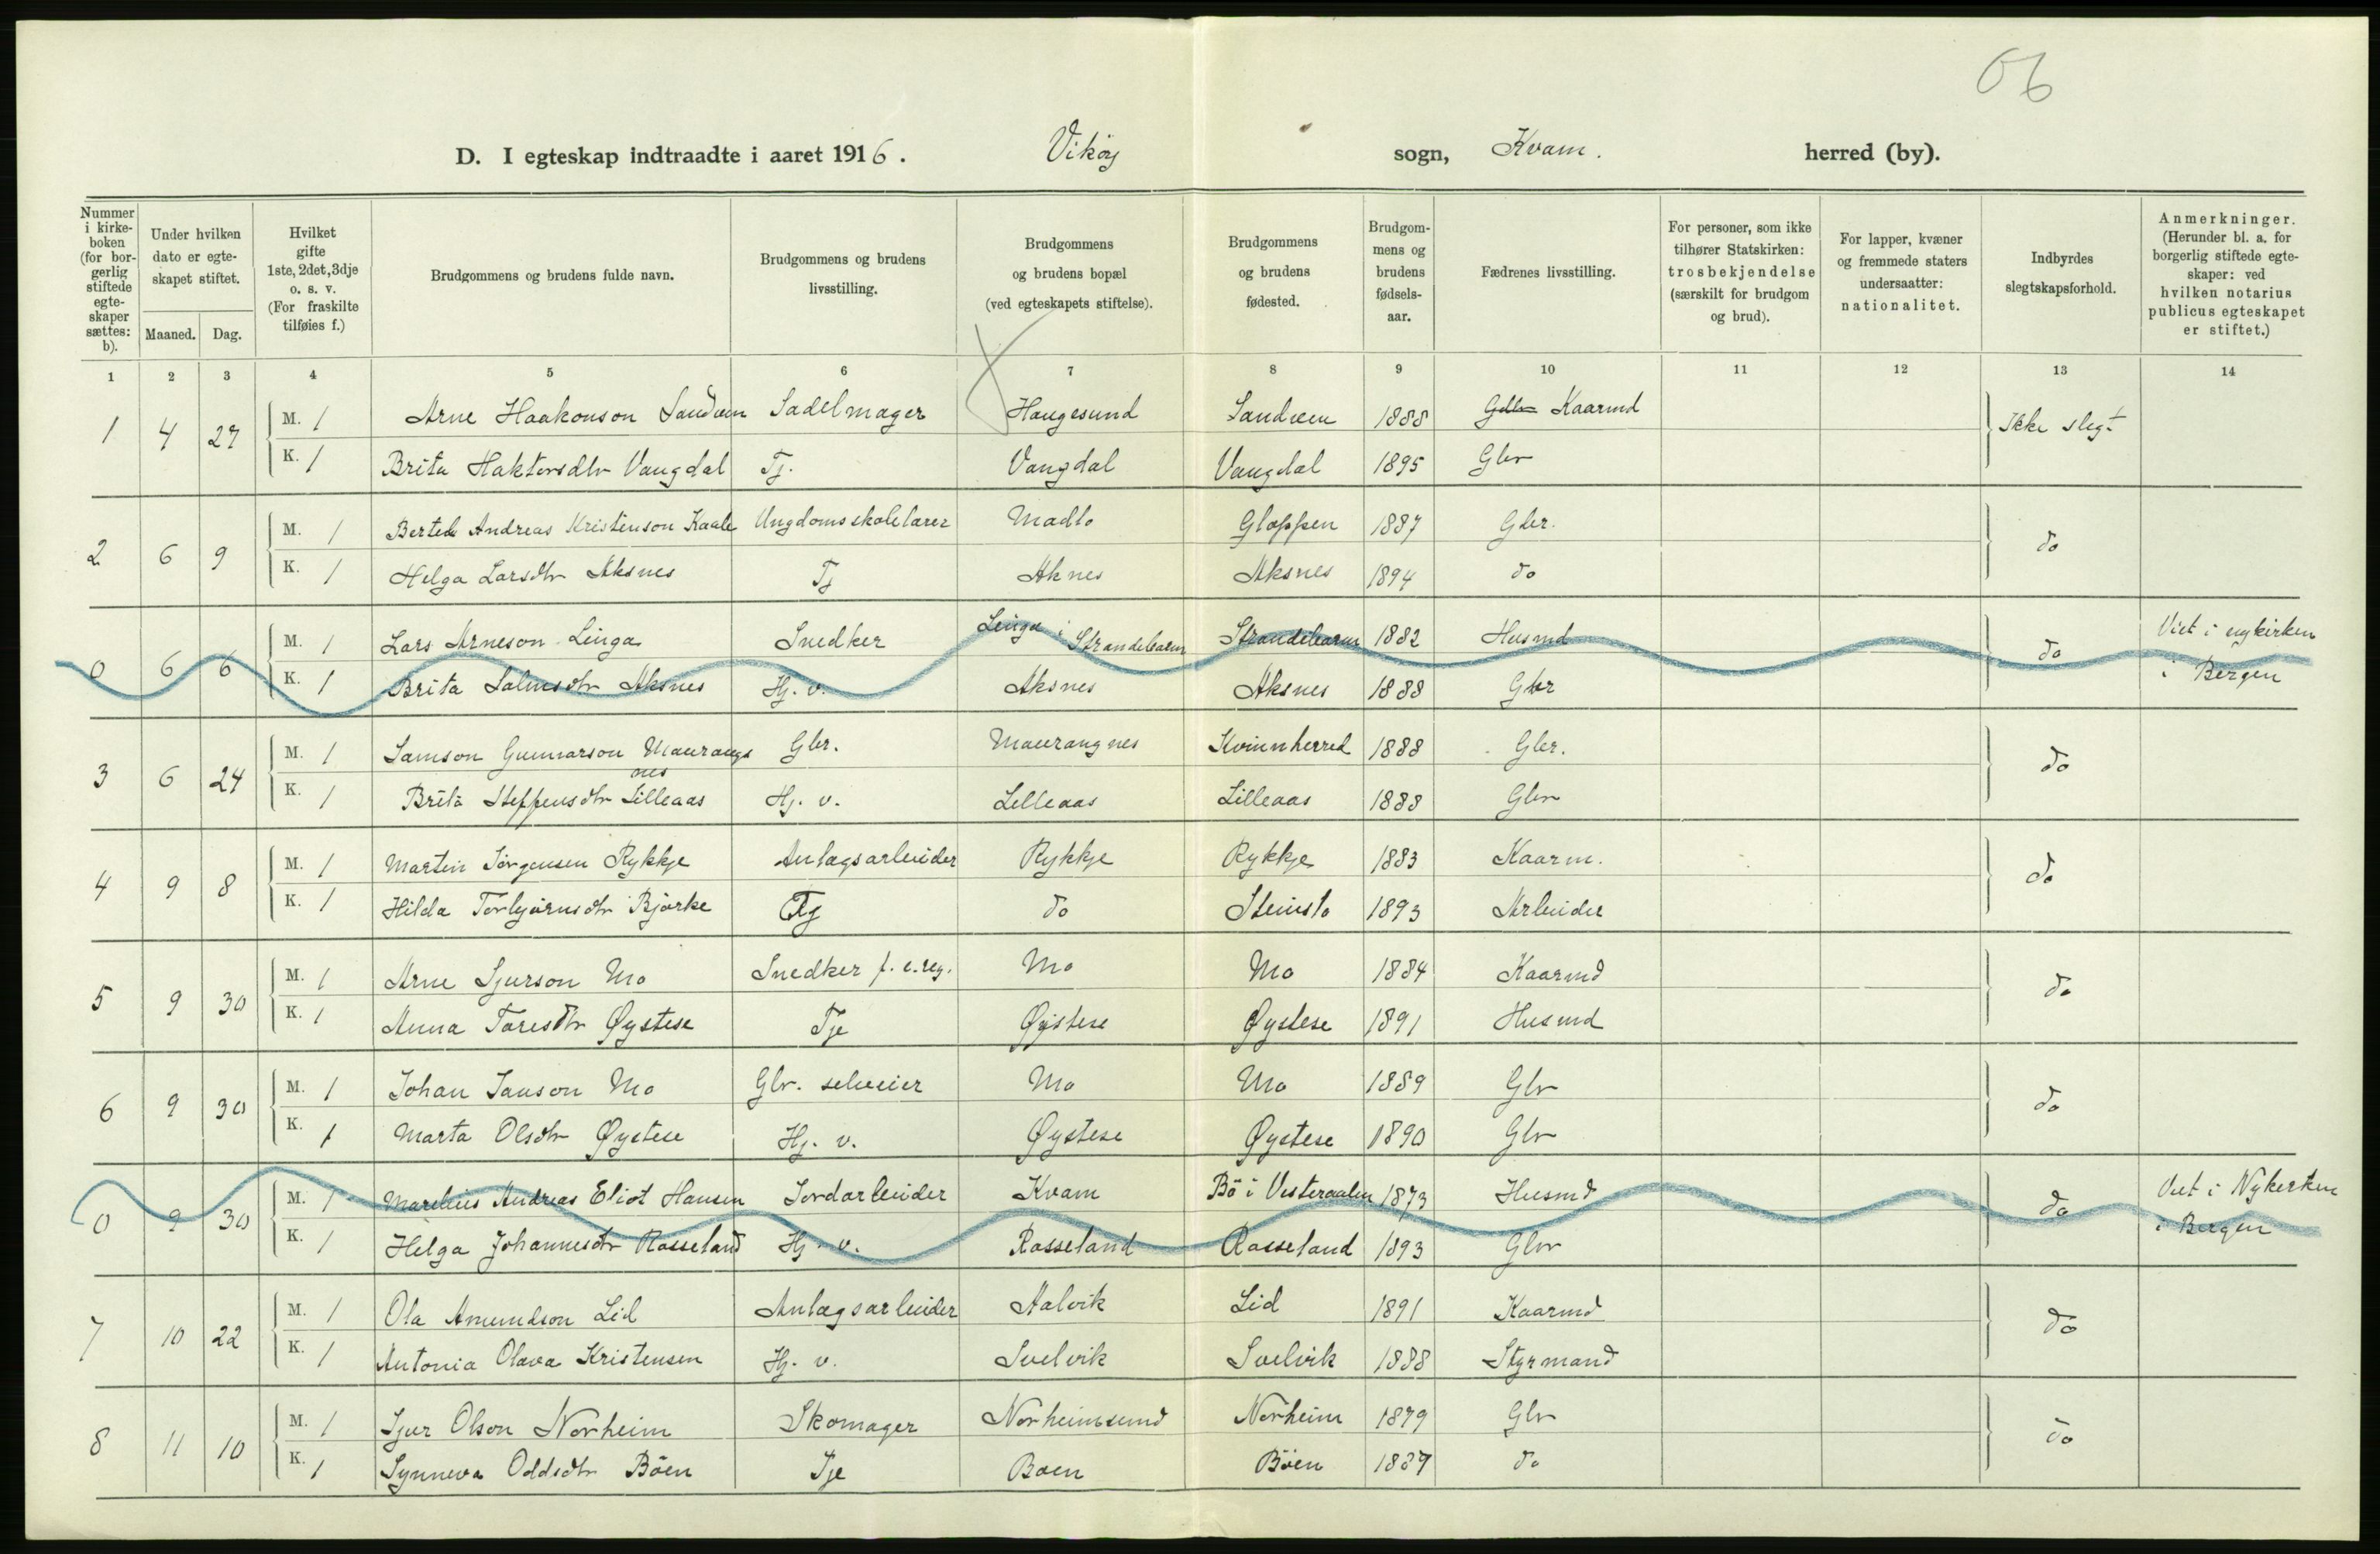 06
D. I egteskap indtraadte i aaret 1916. Vikøy sogn, Kvam. herred (by).
Nummer i kirkeboken (for borgerlig stiftede egteskaper sættes: b).
Under hvilken dato er egteskapet stiftet.
Maaned. Dag.
Hvilket gifte 1ste, 2det, 3dje o. s. v. (For fraskilte tilføies f.)
Brudgommens og brudens fulde navn.
Brudgommens og brudens livsstilling.
Brudgommens og brudens bopæl (ved egteskapets stiftelse).
Brudgommens og brudens fødested.
Brudgommens og brudens fødselsaar.
Fædrenes livsstilling.
For personer, som ikke tilhører Statskirken: trosbekjendelse (særskilt for brudgom og brud).
For lapper, kvæner og fremmede staters undersaatter: nationalitet.
Indbyrdes slegtskapsforhold.
Anmerkninger. (Herunder bl. a. for borgerlig stiftede egteskaper: ved hvilken notarius publicus egteskapet er stiftet.)
1 2 3 4 5 6 7 8 9 10 11 12 13 14
1 4 27 M. 1 Arne Haakonson Sandven Sadelmager Haugesund Sandven 1888 Kaarmd Ikke slegt
K. 1 Brita Haktorsdtr Vangdal Tj. Vangdal Vangdal 1895 Gbr
2 6 9 M. 1 Bertel Andreas Kristenson Kaale Ungdomsskolelærer Madla Gloppen 1887 Gbr. do
K. 1 Helga Larsdtr Aksnes Tj Aknes Aksnes 1894 do
0 6 6 M. 1 Lars Arneson Linga Snedker Linga i Strandebarm Strandebarm 1882 Husmd do Viet i nykirken
K. 1 Brita Salmsdtr Aksnes Hj. v. Aksnes Aksnes 1888 Gbr i Bergen
3 6 24 M. 1 Samson Gunnarson Maurangsnes Gbr. Maurangnes Kvinnherred 1888 Gbr. do
K. 1 Brita Steffensdtr Lilleaas Hj. v. Lilleaas Lilleaas 1888 Gbr
4 9 8 M. 1 Martin Jørgensen Rykkje Anlægsarbeider Rykkje Rykkje 1883 Kaarm. do
K. 1 Hilda Torbjørnsdtr Bjørke Tj do Steinstø 1893 Arbeider
5 9 30 M. 1 Arne Sjurson Mo Snedker f. e. reg. Mo Mo 1884 Kaarmd do
K. 1 Anna Toresdtr Øystese Tje Øystese Øystese 1891 Husmd
6 9 30 M. 1 Johan Janson Mo Gbr. selveier Mo Mo 1889 Gbr do
K. 1 Marta Olsdtr Øystese Hj. v. Øystese Øystese 1890 Gbr
0 9 30 M. 1 Marelius Andreas Eliot Hansen Jordarbeider Kvam Bö i Vesteraalen 1873 Husmd do Viet i Nykerken
K. 1 Helga Johannesdtr Rosseland Hj. v. Rosseland Rosseland 1893 Gbr i Bergen
7 10 22 M. 1 Ola Amundson Lid Anlægsarbeider Aalvik Lid 1891 Kaarmd do
K. 1 Antonia Olava Kristensen Hj. v. Svelvik Svelvik 1888 Styrmand
8 11 10 M. 1 Sjur Olson Norheim Skomager Norheimsund Norheim 1879 Gbr do
K. 1 Synneva Oddsdtr Böen Tje Boen Böen 1887 do